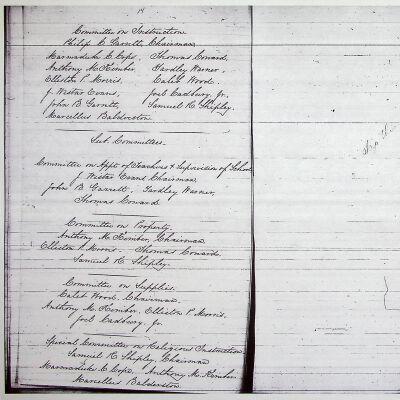 14
Committee on Instruction
Philip C. Garrett, Chairman,
Marmaduke C. Cope, Thomas Conard,
Anthony M. Kimber, Yardley Warner,
Elliston P. Morris, Caleb Wood,
J. Wistar Evans, Joel Cadbury, Jr.
John B. Garrett, Samuel R. Shipley,
Marcellus Balderston.
Sub. Committees.
Committee on Appt. of Teachers & Supervision of School
J. Wistar Evans Chairman
John B. Garrett, Yardley Warner,
Thomas Conard
Committee on Property.
Anthony M. Kimber, Chairman
Elliston P. Morris - Thomas Conard,
Samuel R. Shipley.
Committee on Supplies.
Caleb Wood, Chairman,
Anthony M. Kimber, Elliston P. Morris,
Joel Cadbury, Jr.
Special Committee on Religious Instruction.
Samuel R. Shipley, Chairman
Marmaduke C. Cope, Anthony M. Kimber
Marcellus Balderston.